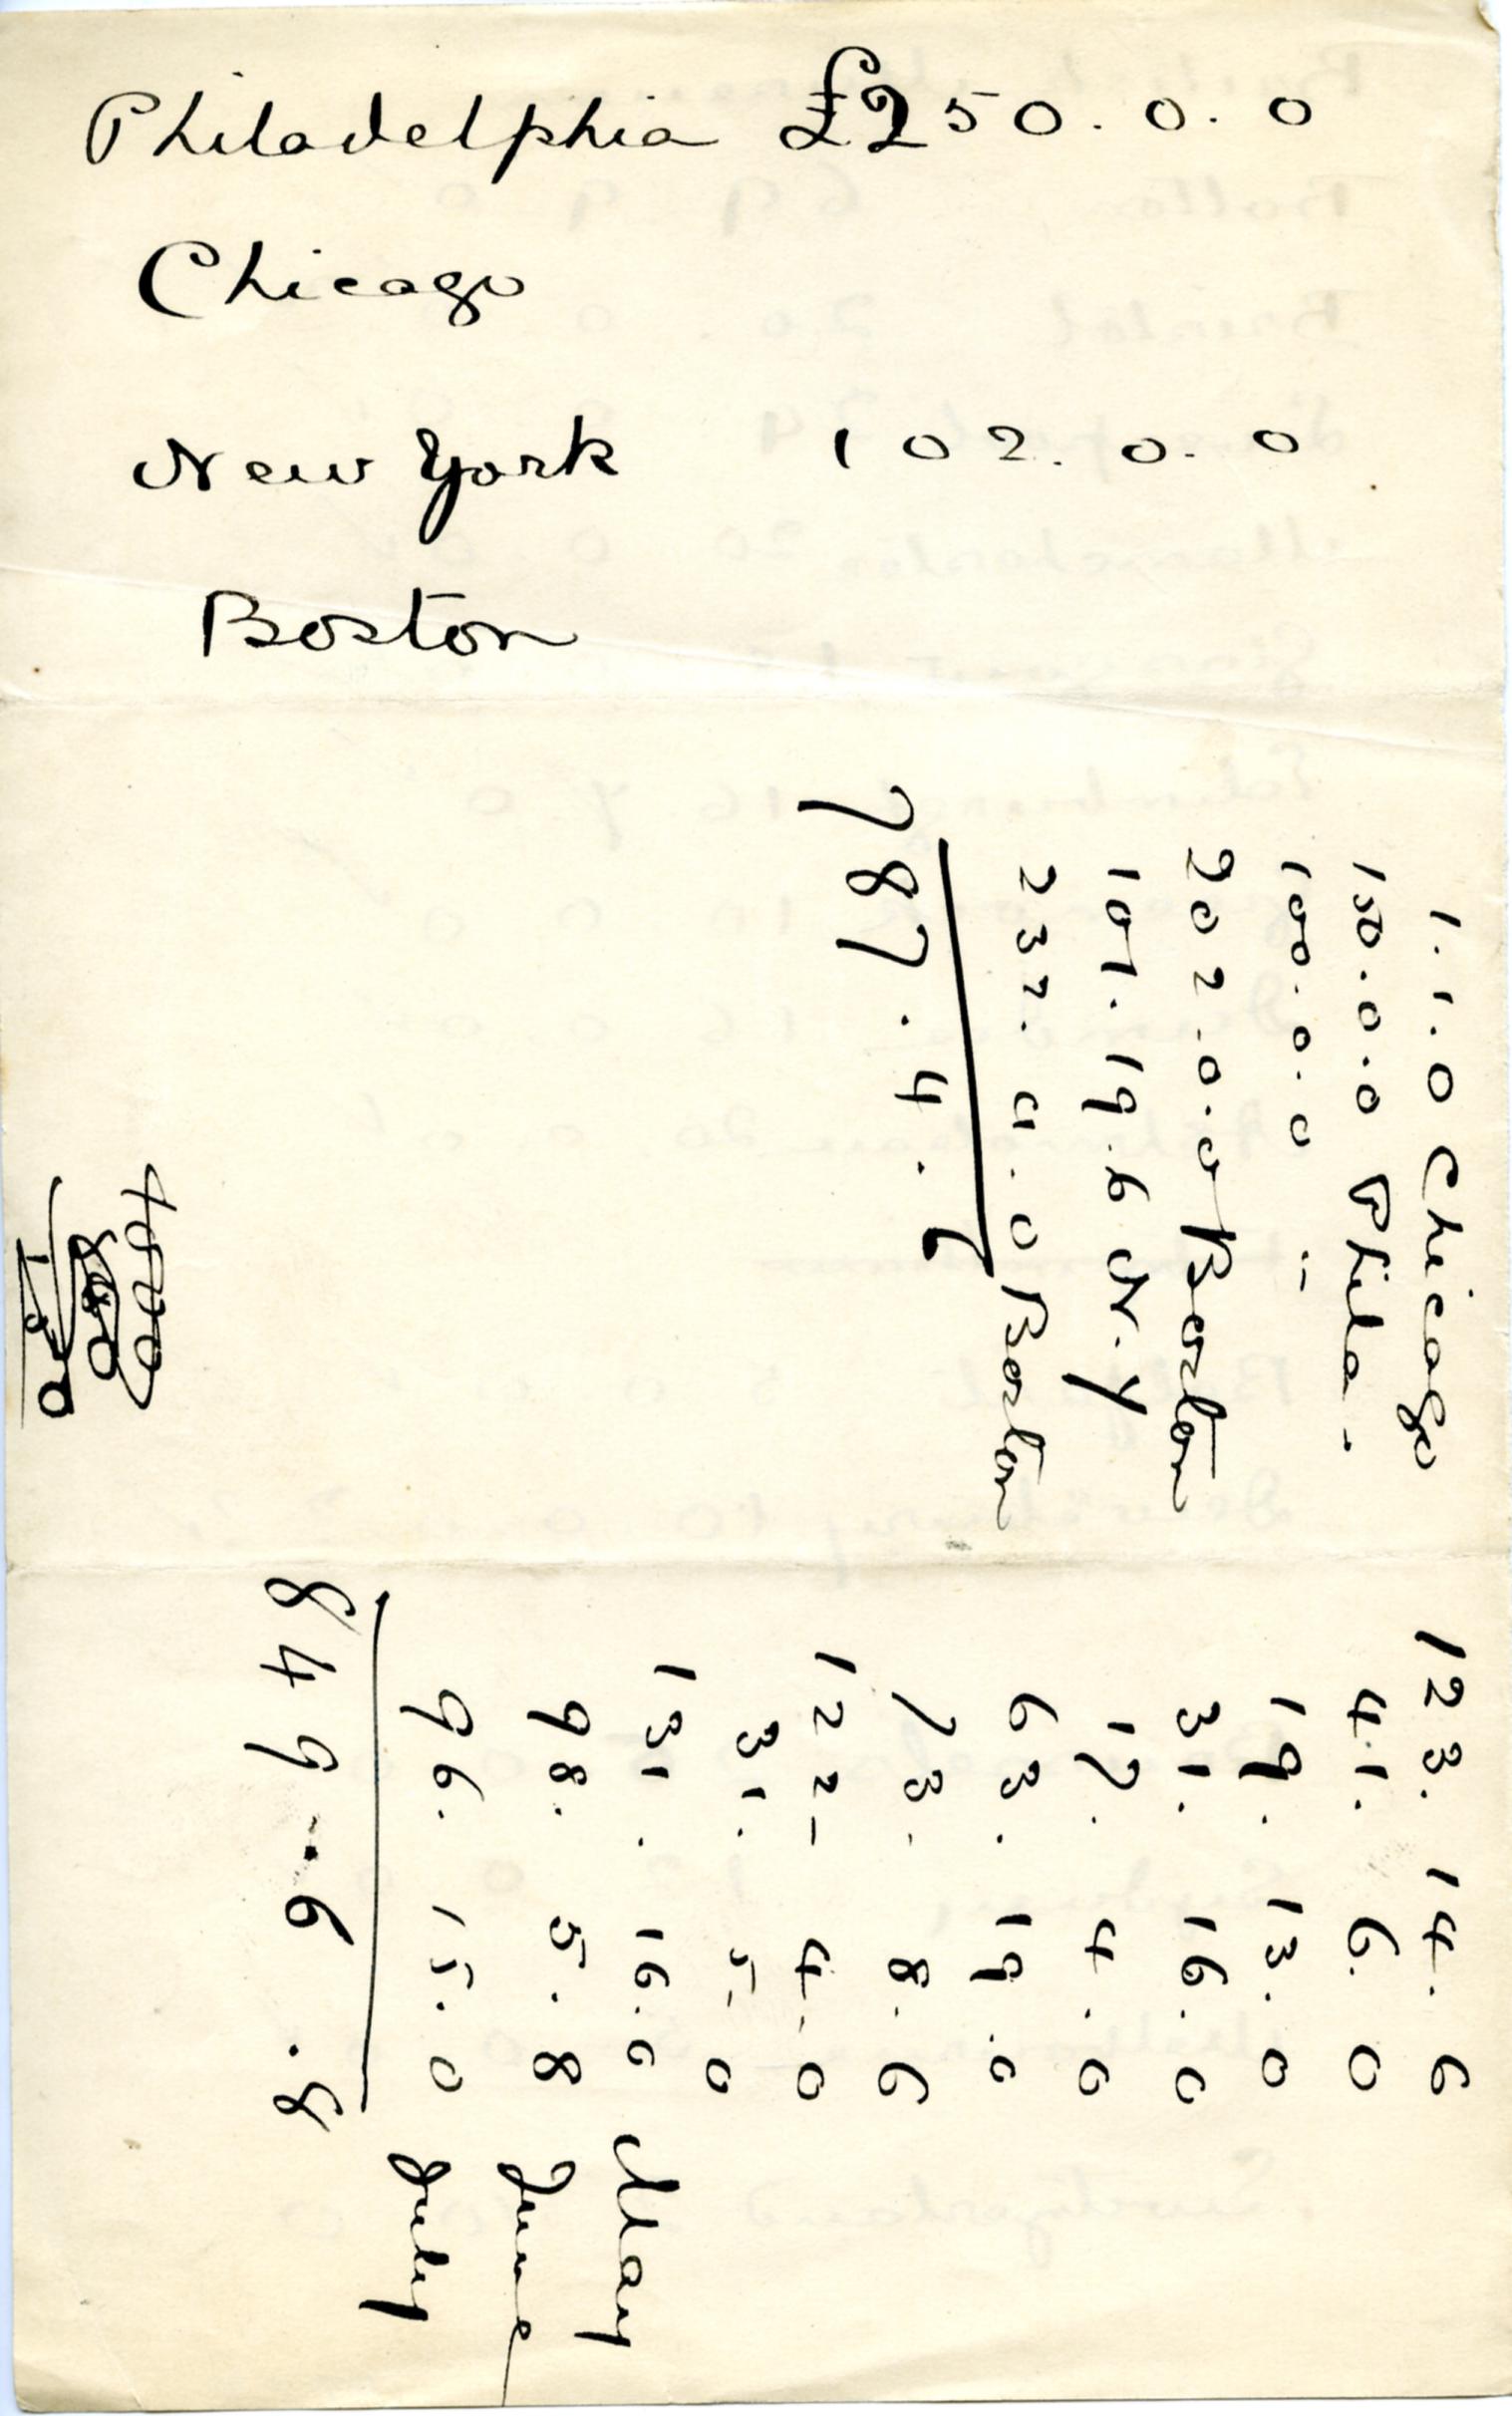 Philadelphia £250.0.0
Chicago
New York 102.0.0
Boston
1.1.0 Chicago
150.0.0 Phila.
100.0.0 "
202.0.0 Boston
101.19.6 N.Y
232.4.0 Boston
787.4.6
123.14.6
41.6.0
19.13.0
31.16.0
17.4.0
63.19.0
73.8.6
122-4.0
31.5-0
131.16.0 May
98.5.8 June
96.15.0 July
849.6.8